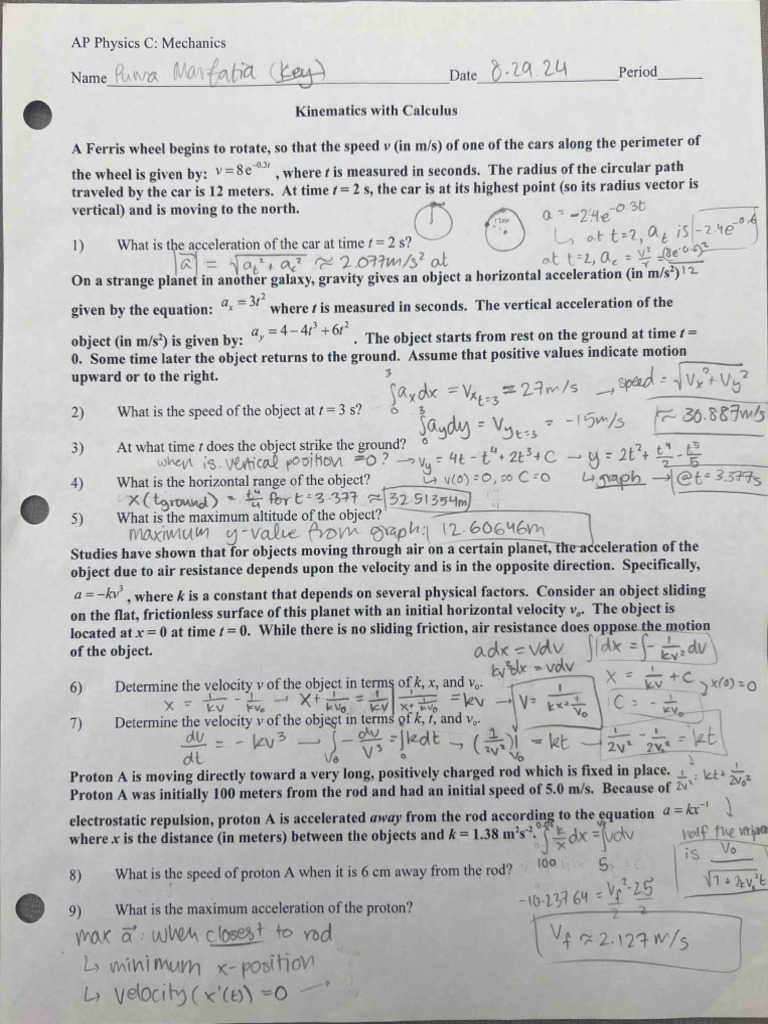 AP Physics C: Mechanics
Name Purva Marfatia (key) Date 8.29.24 Period
Kinematics with Calculus
A Ferris wheel begins to rotate, so that the speed v (in m/s) of one of the cars along the perimeter of
the wheel is given by: v = 8e^-0.3t , where t is measured in seconds. The radius of the circular path
traveled by the car is 12 meters. At time t = 2 s, the car is at its highest point (so its radius vector is
vertical) and is moving to the north.
12m
a = -2.4e^-0.3t
↳ at t=2, a_t is -2.4e^-0.6
1) What is the acceleration of the car at time t = 2 s?
at t=2, a_c = v²/r = (8e^-0.6)²/12
|a⃗| = √(a_t² + a_c²) ≈ 2.077m/s² at
On a strange planet in another galaxy, gravity gives an object a horizontal acceleration (in m/s²)
given by the equation: a_x = 3t² where t is measured in seconds. The vertical acceleration of the
object (in m/s²) is given by: a_y = 4 – 4t³ + 6t² . The object starts from rest on the ground at time t =
0. Some time later the object returns to the ground. Assume that positive values indicate motion
upward or to the right.
∫₀³ a_x dx = V_x t=3 = 27m/s → speed = √(V_x² + V_y²)
2) What is the speed of the object at t = 3 s?
∫₀³ a_y dy = V_y t=3 = -15m/s ≈ 30.887m/s
3) At what time t does the object strike the ground?
when is vertical position = 0? → v_y = 4t - t⁴ + 2t³ + C → y = 2t² + t⁴/2 - t⁵/5
4) What is the horizontal range of the object? ↳ v(0) = 0, so C = 0 ↳ graph → @t = 3.377s
x (t_ground) = t⁴/4 for t = 3.377 ≈ 32.51354m
5) What is the maximum altitude of the object?
maximum y-value from graph: 12.60646m
Studies have shown that for objects moving through air on a certain planet, the acceleration of the
object due to air resistance depends upon the velocity and is in the opposite direction. Specifically,
a = –kv³ , where k is a constant that depends on several physical factors. Consider an object sliding
on the flat, frictionless surface of this planet with an initial horizontal velocity v_o. The object is
located at x = 0 at time t = 0. While there is no sliding friction, air resistance does oppose the motion
of the object.
adx = vdv ∫1dx = ∫-1/kv² dv
kv³dx = vdv
x = 1/kv + C
x(0) = 0
C = -1/kv₀
6) Determine the velocity v of the object in terms of k, x, and v_o.
x = 1/kv - 1/kv₀ → x + 1/kv₀ = 1/kv | 1/(x + 1/kv₀) = kv → V = 1/(kx + 1/v₀)
7) Determine the velocity v of the object in terms of k, t, and v_o.
dv/dt = -kv³ → ∫_v₀ -dv/v³ = ∫₀ kdt → (1/2v²)|_v₀ = kt → 1/2v² - 1/2v₀² = kt
Proton A is moving directly toward a very long, positively charged rod which is fixed in place.
1/2v² = kt + 1/2v₀²
Proton A was initially 100 meters from the rod and had an initial speed of 5.0 m/s. Because of
electrostatic repulsion, proton A is accelerated away from the rod according to the equation a = kx⁻¹
where x is the distance (in meters) between the objects and k = 1.38 m²s⁻².
∫₁₀₀^0.06 k/x dx = ∫₅^vf vdv
half the
is v₀/√(1 + 2kv₀²t)
8) What is the speed of proton A when it is 6 cm away from the rod?
-10.23764 = v_f²/2 - 25/2
9) What is the maximum acceleration of the proton?
V_f ≈ 2.127 m/s
max a⃗: when closest to rod
↳ minimum x-position
↳ velocity (x'(t)) = 0 →